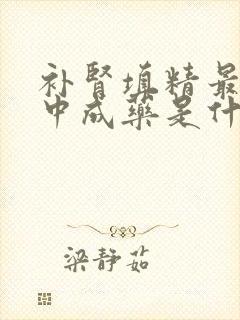 补肾填精最
中成药是什
梁静茹